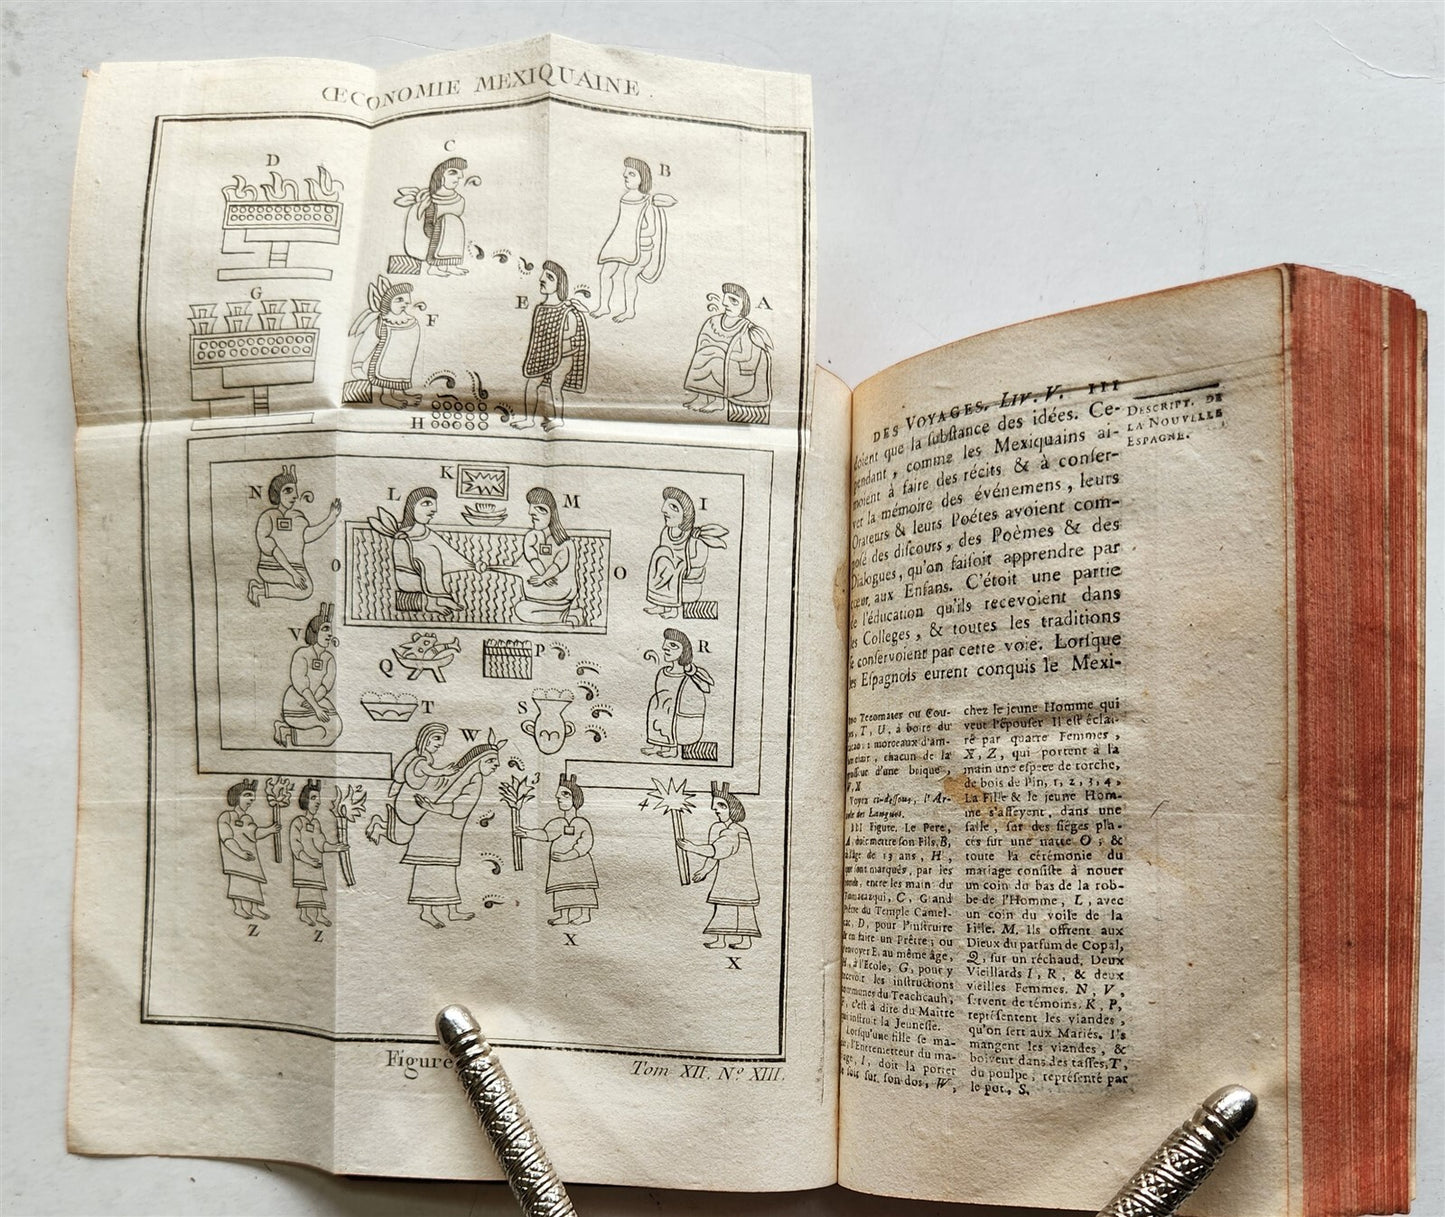 ŒCONOMIE MEXIQUAINE.
D
C
B
G
F
E
A
H
N
K
L
M
I
O
O
V
Q
P
R
T
S
W
2
3
4
Z
Z
X
X
Figure
Tom XII. Nº XIII.
DES VOYAGES. LIV. V. III
DESCRIPT. DE
LA NOUVELLE
ESPAGNE.
doient que la substance des idées. Ce-
pendant, comme les Mexiquains ai-
moient à faire des récits & à conser-
ver la mémoire des événemens, leurs
Orateurs & leurs Poétes avoient com-
posé des discours, des Poèmes & des
Dialogues, qu'on faisoit apprendre par
cœur aux Enfans. C'étoit une partie
de l'éducation qu'ils recevoient dans
les Colleges, & toutes les traditions
se conservoient par cette voie. Lorsque
les Espagnols eurent conquis le Mexi-
Tecomates ou Cou-
T, U, à boire du
morceaux d'am-
chacun de la
d'une brique,
V, X
Voyez ci-dessous, l'Ar-
des Langues.
III Figure. Le Pere,
A, doit mettre son Fils, B,
à l'âge de 15 ans, H,
marqués, par les
entre les main du
C, Grand
Prêtre du Temple
D, pour l'instruire
en faire un Prêtre; ou
envoyer E, au même âge,
H, à l'Ecole, G, pour y
recevoir les instructions
communes du Teachcauh,
F, c'est à dire du Maitre
qui instruit la Jeunesse.
Lorsqu'une fille se ma-
l'Entremetteur du ma-
I, doit la porter
sur son dos, W,
chez le jeune Homme qui
veut l'épouser Il est éclai-
ré par quatre Femmes,
X, Z, qui portent à la
main une espece de torche,
de bois de Pin, 1, 2, 3, 4,
La Fille & le jeune Hom-
me s'asseyent, dans une
salle, sur des siéges pla-
cés sur une natte O; &
toute la cérémonie du
mariage consiste à nouer
un coin du bas de la rob-
be de l'Homme, L, avec
un coin du voile de la
Fille. M. Ils offrent aux
Dieux du parfum de Copal,
Q, sur un réchaud. Deux
Vieillards I, R, & deux
vieilles Femmes. N, V,
servent de témoins. K, P,
représentent les viandes,
qu'on sert aux Mariés. I's
mangent les viandes, &
boivent dans des tasses, T,
du poulpe, représenté par
le pot, S.